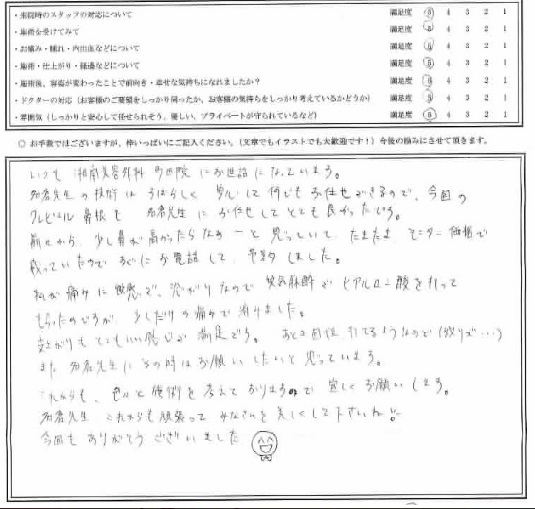 ・来院時のスタッフの対応について 満足度 5 4 3 2 1
・施術を受けてみて 満足度 5 4 3 2 1
・お痛み・腫れ・内出血などについて 満足度 5 4 3 2 1
・施術・仕上がり・経過などについて 満足度 5 4 3 2 1
・施術後、容姿が変わったことで前向き・幸せな気持ちになれましたか？ 満足度 5 4 3 2 1
・ドクターの対応（お客様のご要望をしっかり伺ったか、お客様の気持ちをしっかり考えているかどうか） 満足度 5 4 3 2 1
・雰囲気（しっかりと安心して任せられそう、優しい、プライベートが守られているなど） 満足度 5 4 3 2 1
○ お手数ではございますが、枠いっぱいにご記入ください。（文章でもイラストでも大歓迎です！）今後の励みにさせて頂きます。
いつも 湘南美容外科 町田院 にお世話になっています。
先生の技術はすばらしく 安心して何でもお任せできるので、今回の
クレヴィエル 鼻根も 先生にお任せしてとても良かったです。
前々から、少し鼻が高かったらなぁーと思っていて、たまたま モニター価格で
残っていたので すぐにお電話して 予約しました。
私が痛みに敏感で、恐がりなので 笑気麻酔でヒアルロン酸を打って
もらったのですが 少しだけの痛みで済みました。
仕上がりもとてもいい感じで満足です。 あと2回位 打てるようなので
また 先生に その時はお願いしたいと思っています。
これからも、色々と施術を考えておりますので 宜しくお願いします。
先生 これからも頑張って みなさんを美しくして下さいね!!
今回も ありがとうございました